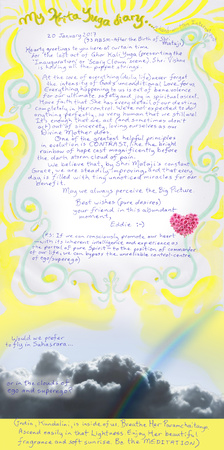 My Krta Yuga diary...
20 January 2017
(93 ABSM - After the Birth of Shri Mataji)
Heartly greetings to you here at curtain time,
for the last act of Ghor Kali Yuga (presenting the
'Inauguration' or Scary Clown scene). Shri Vishnu
is taking all the puppet strings.
At the core of everything (daily life) never forget
the intensity of God's unconditional Love, for us.
Everything happening to us is out of benevolence
for our ultimate safety and joy in spiritual ascent.
Have faith that She has every detail of our destiny
completely in Her control. We're not expected to do
anything perfectly, so very human that we still are!
It's enough that we act (and sometimes don't
act) out of sincerity, loving ourselves as our
Divine Mother does.
One of the greatest helpful principles
in evolution is CONTRAST, like the bright
rainbow of hope cast magnificently before
the dark storm cloud of pain.
We believe that, by Shri Mataji's constant
Grace, we are steadily improving, and that every
day is filled with tiny unnoticed miracles for our
benefit.
May we always perceive the Big Picture
Best wishes (pure desires)
your friend in this abundant
moment,
Eddie :-)
(PS: If we can consciously promote our heart
(with its inherent intelligence and experience as
the portal of pure Spirit) to the position of commander
of our life, we can bypass the unreliable control-centre
of ego/superego)
Would we prefer
to fly in Sahasrara...
or in the clouds of
ego and superego?
Ascend easily in that Lightness. Enjoy Her beautiful
fragrance and soft sunrise. Be the MEDITATION)